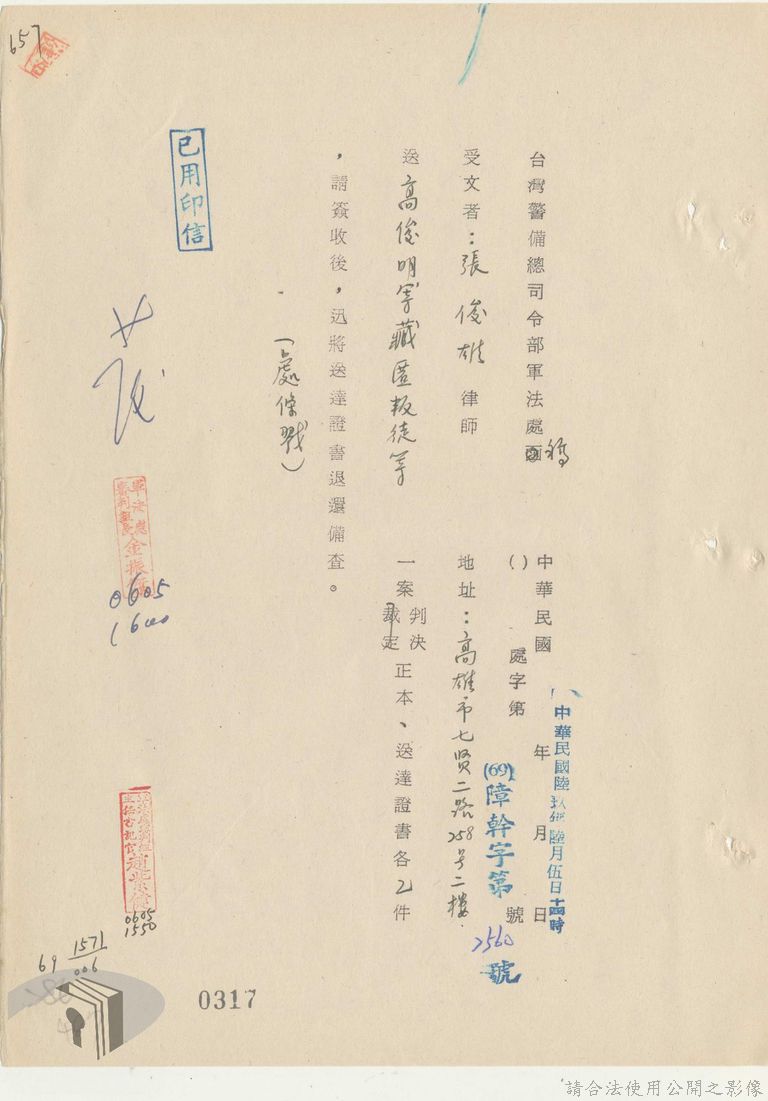 657
台灣警備總司令部軍法處函稿
中華民國 年 月 日
中華民國陸玖年陸月伍日十四時
( ) 處字第 號
(69)障幹字第2560號
受文者：張俊雄律師
地址：高雄市七賢二路258号二樓
送高俊明等藏匿叛徒等
一案判決
裁定
正本、送達證書各乙件
，請簽收後，迅將送達證書退還備查。
(處條戳)
已用印信
軍法處
審判組長 金振
0605
1600
主任書記官
0605
1550
69 1571
006
0317
請合法使用公開之影像